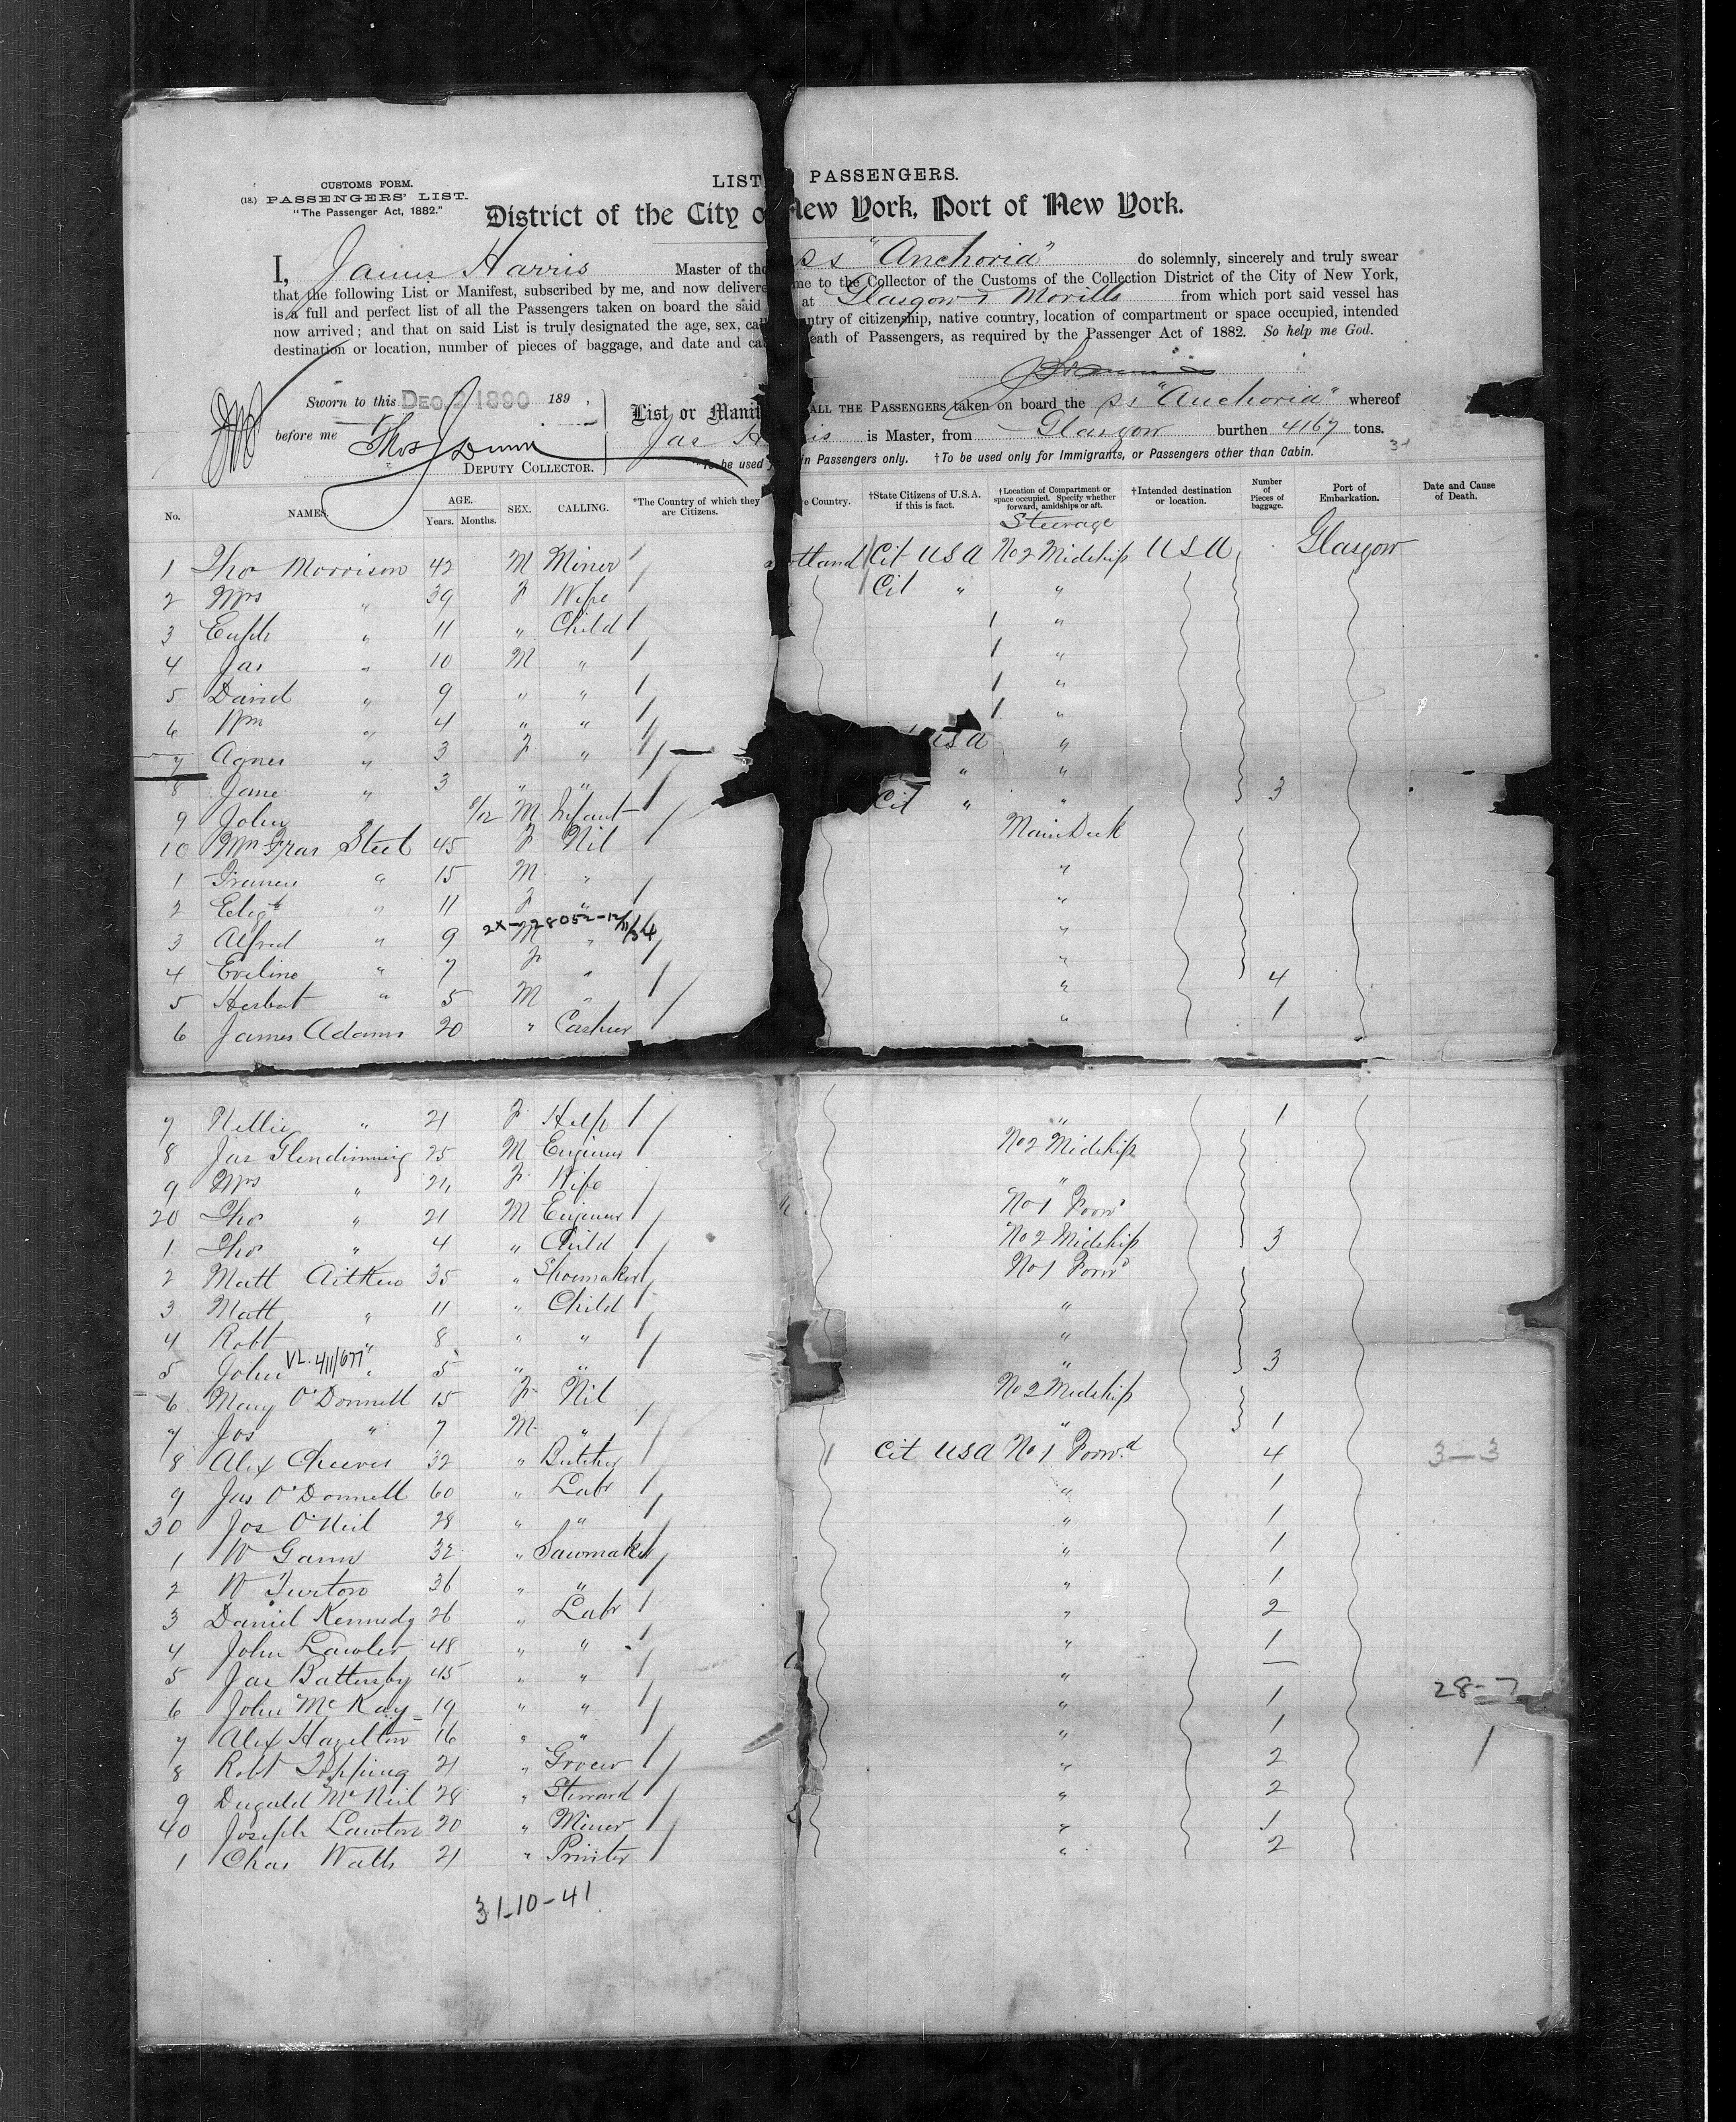 LIST PASSENGERS.
CUSTOMS FORM.
(18.) PASSENGERS' LIST.
"The Passenger Act, 1882."
District of the City o New York, Port of New York.
I, James Harris Master of the ss "Anchoria" do solemnly, sincerely and truly swear
that the following List or Manifest, subscribed by me, and now delivere me to the Collector of the Customs of the Collection District of the City of New York,
is a full and perfect list of all the Passengers taken on board the said at Glasgow & Moville from which port said vessel has
now arrived; and that on said List is truly designated the age, sex, cal ntry of citizenship, native country, location of compartment or space occupied, intended
destination or location, number of pieces of baggage, and date and ca eath of Passengers, as required by the Passenger Act of 1882. So help me God.
Sworn to this DEC 2 1890 189 ,
before me Thos J Dunn
DEPUTY COLLECTOR.
List or Manif ALL THE PASSENGERS taken on board the ss "Anchoria" whereof
Jas H is is Master, from Glasgow burthen 4167 tons.
*To be used in Passengers only. †To be used only for Immigrants, or Passengers other than Cabin.
No. NAMES. AGE. Years. Months. SEX. CALLING. *The Country of which they are Citizens. e Country. †State Citizens of U.S.A. if this is fact. †Location of Compartment or space occupied. Specify whether forward, amidships or aft. †Intended destination or location. Number of Pieces of baggage. Port of Embarkation. Date and Cause of Death.
Steerage
1 Tho Morrison 42 M Miner otland Cit USA No 2 Midship USA Glasgow
2 Mrs " 39 F Wife Cit " "
3 Euph " 11 " Child "
4 Jas " 10 M " "
5 David " 9 " " "
6 Wm " 4 " " "
7 Agnes " 3 F " USA "
8 Jane " 3 " " " " 3
9 John /12 M Infant Cit " "
10 Mrs Fras Steel 45 F Nil Main Deck
1 Francis " 15 M " "
2 Eliz " 11 F " "
2X-28052-12/11/34
3 Alfred " 9 M " "
4 Eveline " 7 F " " 4
5 Herbert " 5 M " "
6 James Adams 20 " Cashier " 1
7 Nellie " 21 F Help " 1
8 Jas Glendinning 25 M Engineer No 2 Midship
9 Mrs " 21 F Wife "
20 Tho " 21 M Engineer No 1 Forwd
1 Tho " 4 " Child No 2 Midship 3
2 Matt Aitken 35 " Shoemaker No 1 Forwd
3 Matt " 11 " Child "
4 Robt " 8 " " "
5 John VL. 411/677 " 5 " " " 3
6 Mary O'Donnell 15 F Nil No 2 Midship
7 Jos " 7 M " " 1
8 Alex Cheevers 32 " Butcher Cit USA No 1 Forwd 4 3-3
9 Jas O'Donnell 60 " Labr " 1
30 Jos O'Neil 28 " " " 1
1 W Gann 32 " Sawmaker " 1
2 W Turton 36 " " " 1
3 Daniel Kennedy 26 " Labr " 2
4 John Lawler 48 " " " 1
5 Jas Battersby 45 " " " —
6 John McKay 19 " " " 1 28-7
7 Alex Hazelton 16 " " " 1
8 Robt Topping 21 " Grocer " 2
9 Dugald McNeil 28 " Steward " 2
40 Joseph Lawton 20 " Miner " 1
1 Chas Watts 21 " Printer " 2
31-10-41